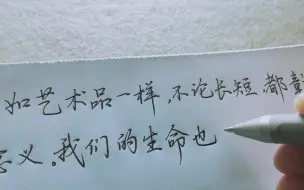 如艺术品一样,不论长短,都彰
意义。我们的生命也